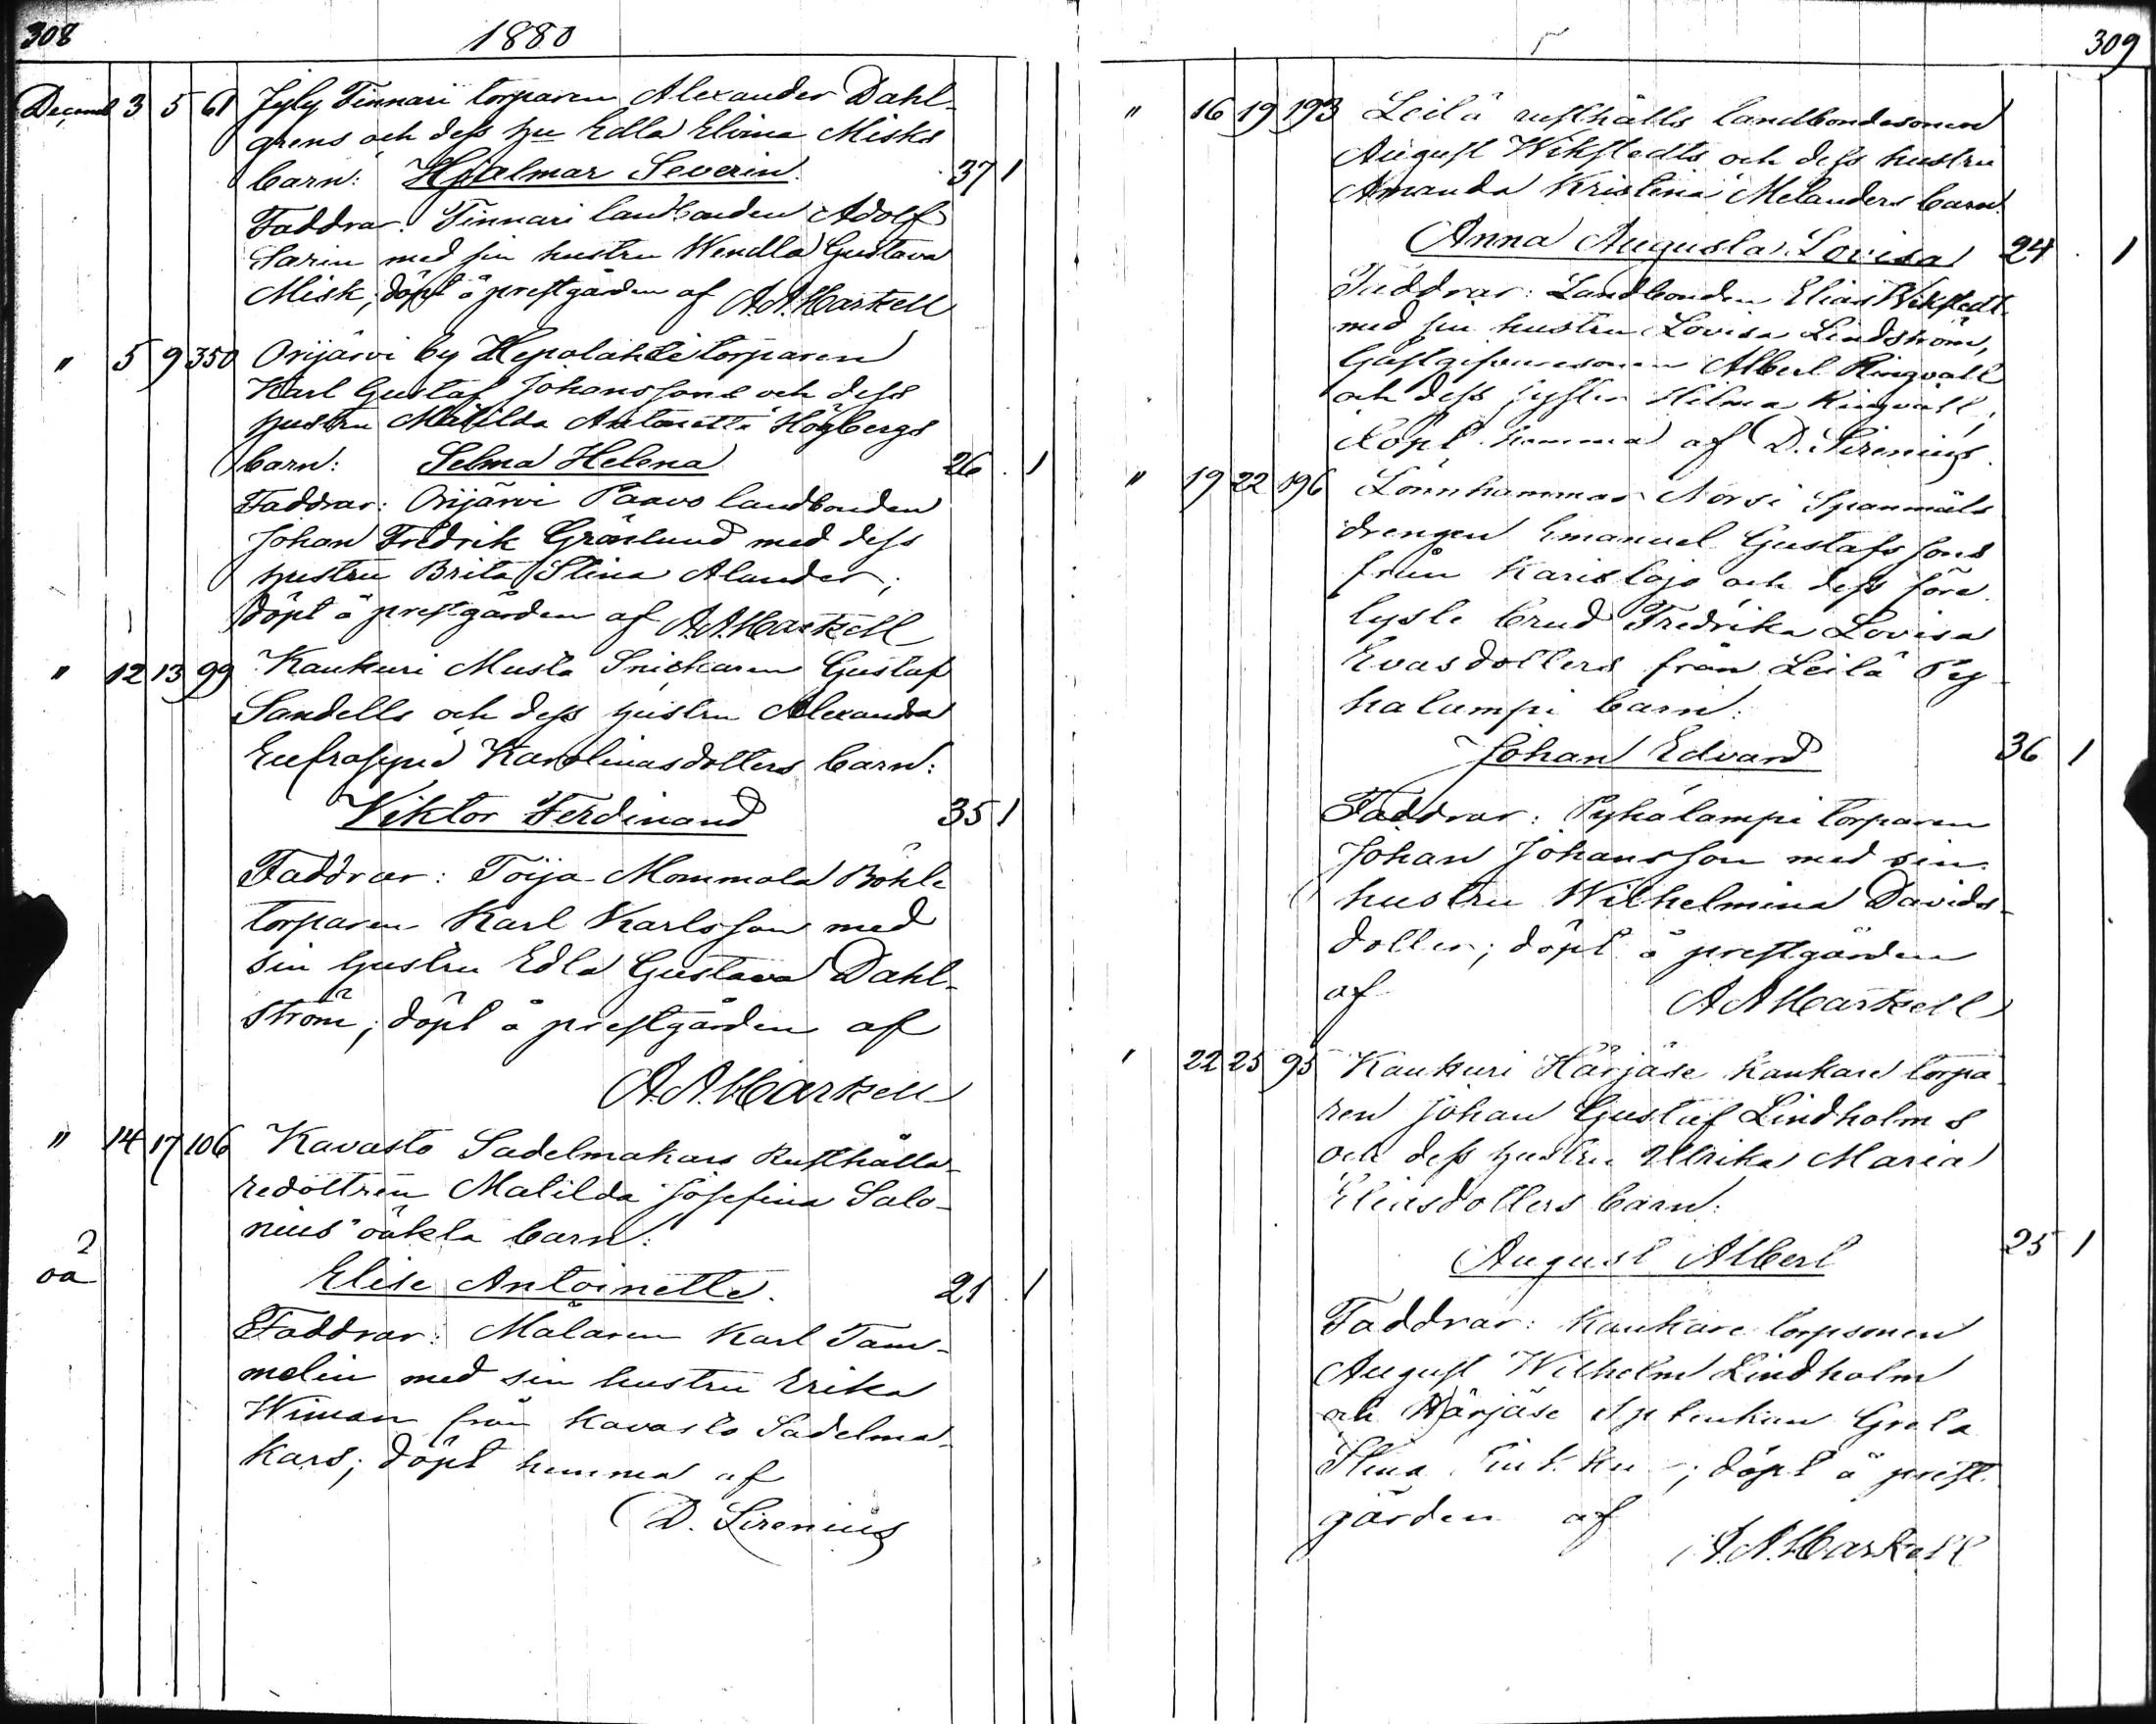 308 1880
Decemb 3 5 61 Jyly Finnari torparen Alexander Dahl-
grens och dess hu Edla Elvina Misks
barn: Hjalmar Severin. 37 1
Faddrar: Finnari landbonden Adolf
Sarin med sin hustru Wendla Gustava
Misk; döpt å prestgården af A.A. Markell
" 5 9 350 Orijärvi by Hepolahti torparen
Karl Gustaf Johanssons och dess
hustru Matilda Antonetta Högbergs
barn: Selma Helena 26 1
Faddrar: Orijärvi Paavo landbonden
Johan Fredrik Grönlund med dess
hustru Brita Stina Alander;
döpt å prestgården af A.A. Markell
" 12 13 99 Kaukuri Musta Snickaren Gustaf
Sandells och dess hustru Alexandra
Karolinasdotters barn:
Viktor Ferdinand 35 1
Faddrar: Toija Mommola Böhle
torparen Karl Karlsson med
sin hustru Edla Gustava Dahl-
ström; döpt å prestgården af
A.A. Markell
" 14 17 106 Kavasto Sadelmakars Rusthålla-
redottren Matilda Josefina Salo-
nius' oäkta barn:
oä Elise Antoinette. 21 1
Faddrar: Målaren Karl Tam-
melin med sin hustru Erika
Wiman från Kavasto Sadelma-
kars; döpt hemma af
D. Sirenius
309
" 16 19 193 Leilä rusthålls landbondesonen
August Wikstedts och dess hustru
Amanda Kristina Melanders barn:
Anna Augusta Lovisa 24 1
Faddrar: Landbonden Elias Wikstedt
med sin hustru Lovisa Lindström,
Gästgifvaresonen Albert Ringvall
och dess syster Hilma Ringvall;
döpt hemma af D. Sirenius.
" 19 22 196 Lönnhammar Norsi Spanmåls
drengen Emanuel Gustafssons
från Karislojo och dess före-
lyste brud Fredrika Lovisa
Evasdotters från Leilä Py-
halampi barn:
Johan Edvard 36 1
Faddrar: Pyhälampi torparen
Johan Johansson med sin
hustru Wilhelmina Davids-
dotter; döpt å prestgården
af A.A. Markell
" 22 25 95 Kaukuri Härjäse Kankare torpa-
ren Johan Gustaf Lindholms
och dess hustru Ulrika Maria
Eliasdotters barn:
August Albert 25 1
Faddrar: Kankare torpsonen
August Wilhelm Lindholm
och Härjäse Greta
Stina ; döpt å prest-
gården af A.A. Markell